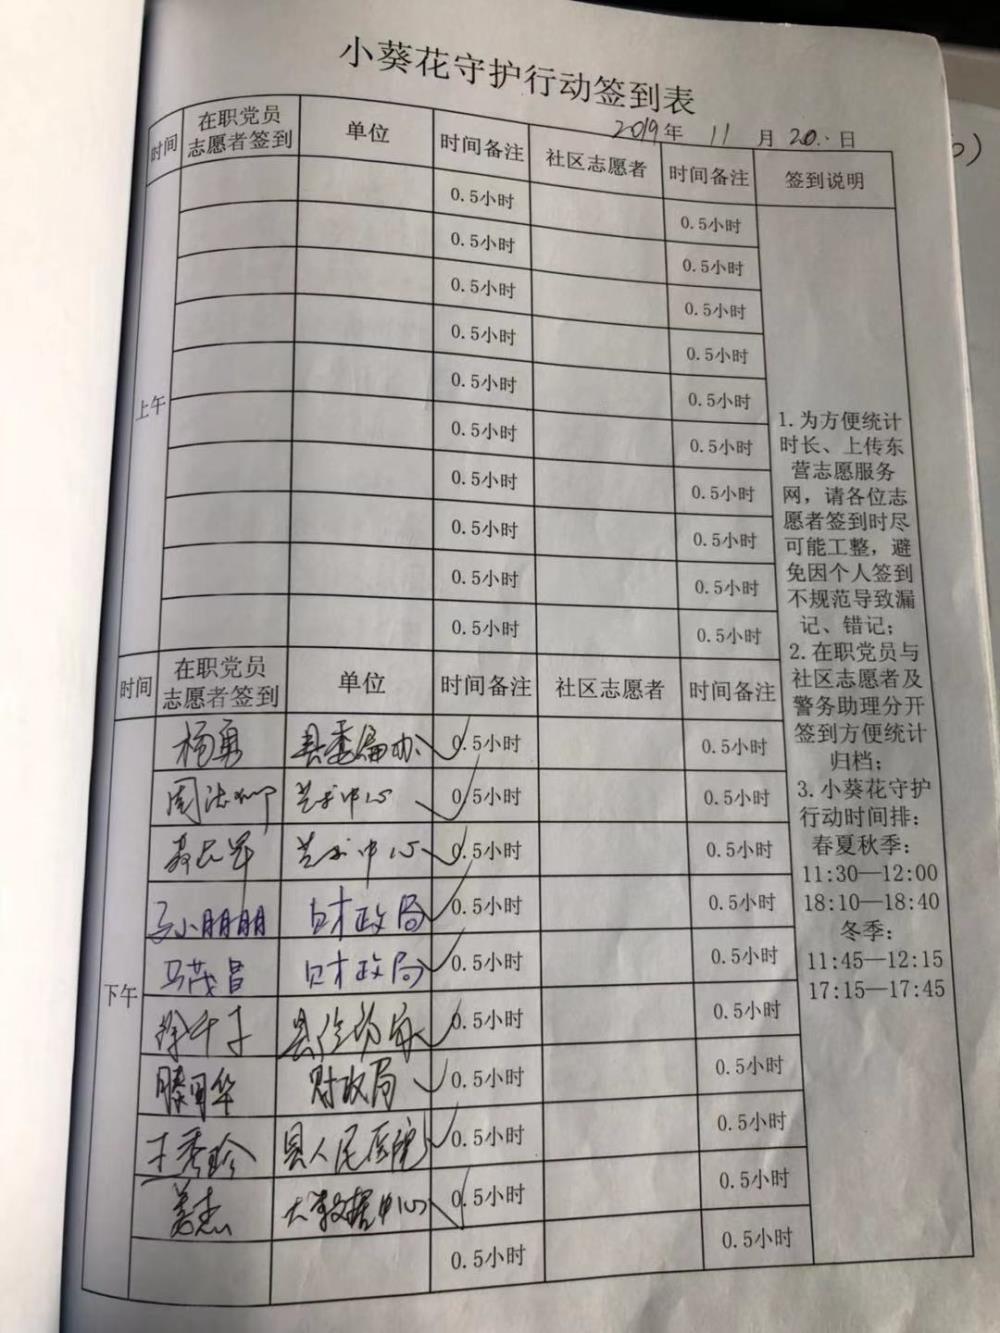 小葵花守护行动签到表
2019年 11 月 20 日
时间 在职党员志愿者签到 单位 时间备注 社区志愿者 时间备注 签到说明
上午
0.5小时 0.5小时
0.5小时 0.5小时
0.5小时 0.5小时
0.5小时 0.5小时
0.5小时 0.5小时
0.5小时 0.5小时
0.5小时 0.5小时
0.5小时 0.5小时
0.5小时 0.5小时
0.5小时 0.5小时
时间 在职党员志愿者签到 单位 时间备注 社区志愿者 时间备注
下午
杨勇 县委编办 0.5小时 0.5小时
艺术中心 0.5小时 0.5小时
艺术中心 0.5小时 0.5小时
马小朋朋 财政局 0.5小时 0.5小时
马茂昌 财政局 0.5小时 0.5小时
0.5小时 0.5小时
滕国华 财政局 0.5小时 0.5小时
于秀珍 县人民医院 0.5小时 0.5小时
姜杰 大数据中心 0.5小时 0.5小时
0.5小时 0.5小时
1.为方便统计
时长、上传东
营志愿服务
网，请各位志
愿者签到时尽
可能工整，避
免因个人签到
不规范导致漏
记、错记；
2.在职党员与
社区志愿者及
警务助理分开
签到方便统计
归档；
3.小葵花守护
行动时间排：
春夏秋季：
11:30—12:00
18:10—18:40
冬季：
11:45—12:15
17:15—17:45